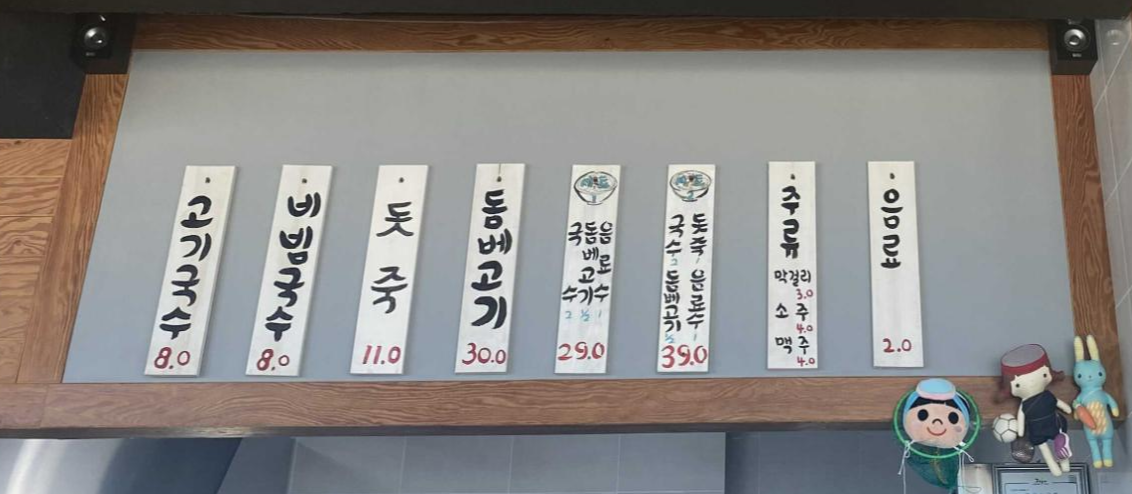 고기국수
8.0
비빔국수
8.0
돗죽
11.0
돔베고기
30.0
세트
1
국수 2
돔베고기 ½
음료수 1
29.0
세트
2
국수 2
돗죽 1
돔베고기 ½
음료수 1
39.0
주류
막걸리
3.0
소주
4.0
맥주
4.0
음료
2.0